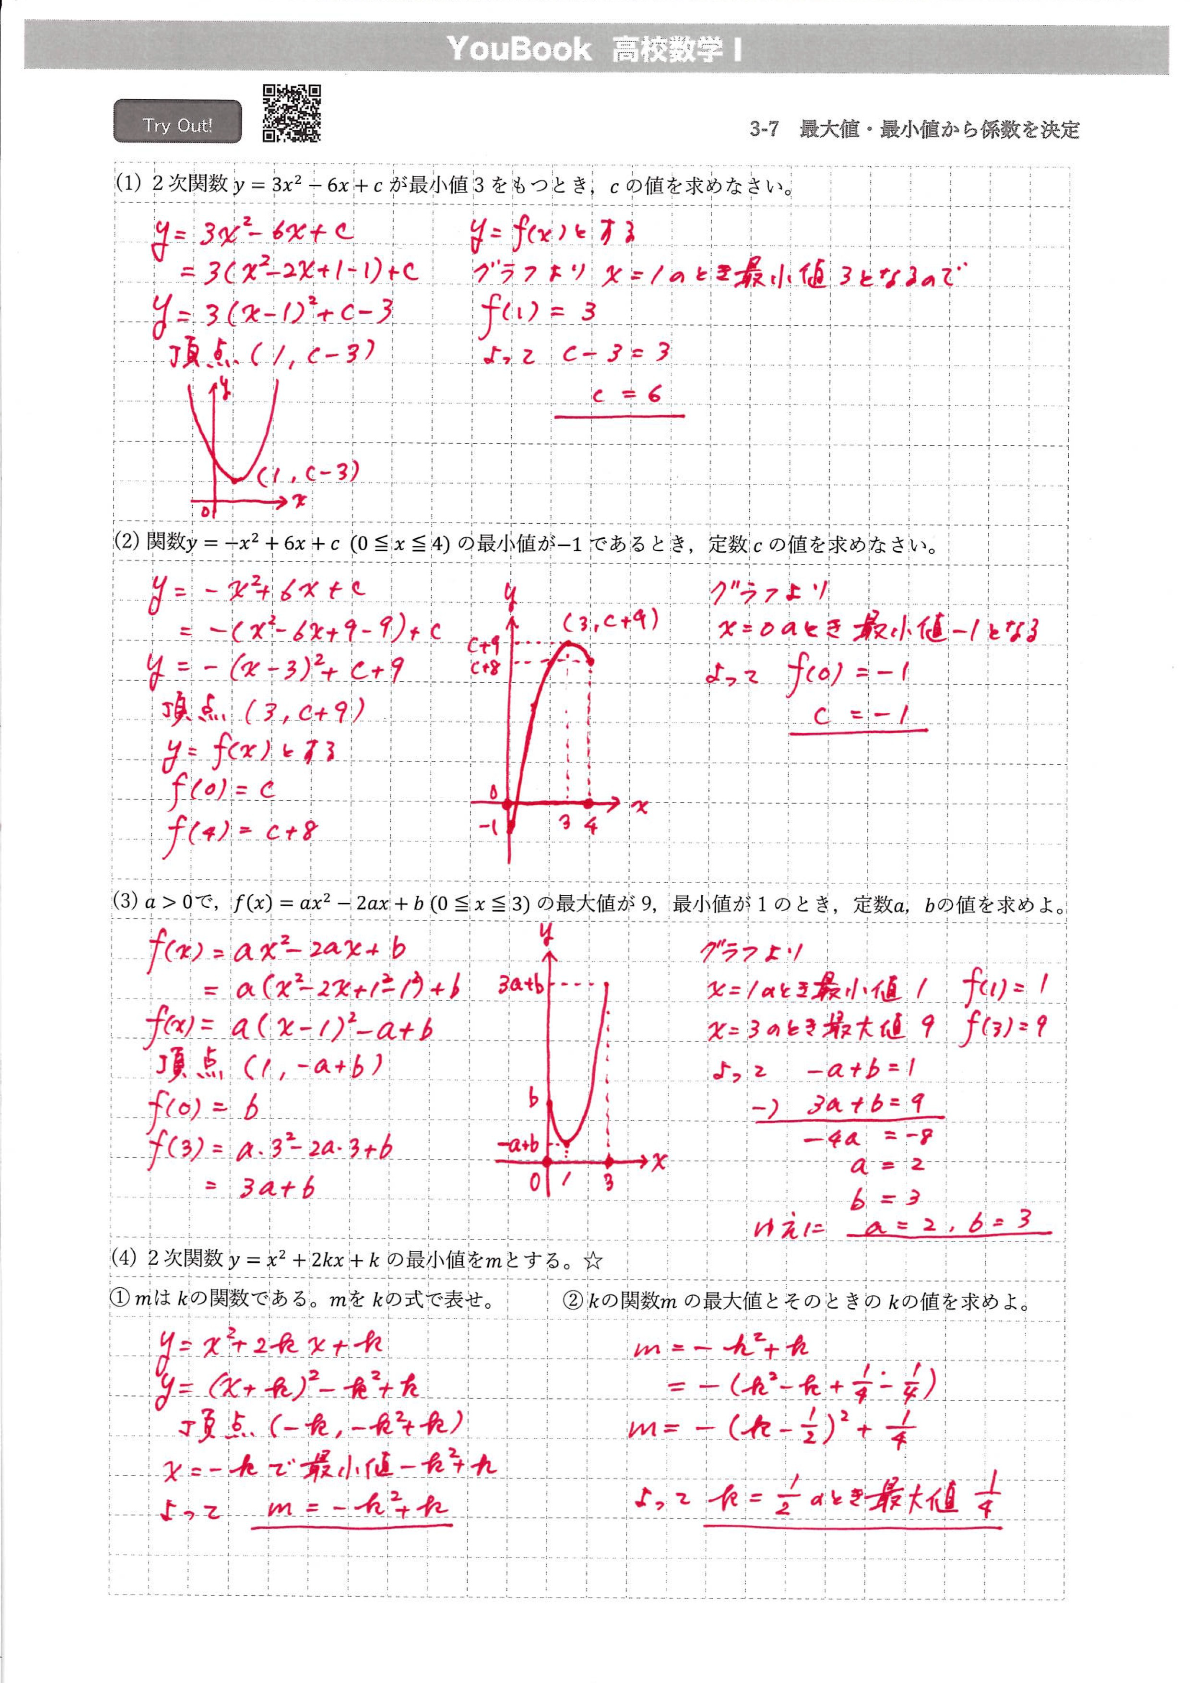 YouBook 高校数学 I
Try Out!
3-7 最大値・最小値から係数を決定
(1) 2次関数 y = 3x² − 6x + c が最小値 3 をもつとき，c の値を求めなさい。
y = 3x² − 6x + c
= 3(x² − 2x + 1 − 1) + c
y = 3(x − 1)² + c − 3
頂点 (1, c − 3)
y
(1, c − 3)
0
x
y = f(x) とする
グラフより x = 1 のとき最小値 3 となるので
f(1) = 3
よって c − 3 = 3
c = 6
(2) 関数y = −x² + 6x + c (0 ≦ x ≦ 4) の最小値が−1 であるとき，定数 c の値を求めなさい。
y = − x² + 6x + c
= −(x² − 6x + 9 − 9) + c
y = − (x − 3)² + c + 9
頂点 (3, c+9)
y = f(x) とする
f(0) = c
f(4) = c + 8
y
(3, c+9)
c+9
c+8
0
x
−1
3 4
グラフより
x = 0 のとき 最小値 −1 となる
よって f(0) = −1
c = −1
(3) a > 0で，f(x) = ax² − 2ax + b (0 ≦ x ≦ 3) の最大値が 9，最小値が 1 のとき，定数a，bの値を求めよ。
f(x) = ax² − 2ax + b
= a(x² − 2x + 1² − 1²) + b
f(x) = a(x − 1)² − a + b
頂点 (1, −a + b)
f(0) = b
f(3) = a・3² − 2a・3 + b
= 3a + b
y
3a+b
b
−a+b
x
0 1 3
グラフより
x = 1 のとき最小値 1 f(1) = 1
x = 3 のとき最大値 9 f(3) = 9
よって −a + b = 1
−) 3a + b = 9
−4a = −8
a = 2
b = 3
ゆえに a = 2 , b = 3
(4) 2次関数 y = x² + 2kx + k の最小値をmとする。☆
① mは kの関数である。mを kの式で表せ。
y = x² + 2kx + k
y = (x + k)² − k² + k
頂点 (−k, −k² + k)
x = −k で 最小値 −k² + k
よって m = −k² + k
② kの関数m の最大値とそのときの kの値を求めよ。
m = − k² + k
= − (k² − k + 1/4 − 1/4)
m = − (k − 1/2)² + 1/4
よって k = 1/2 のとき 最大値 1/4